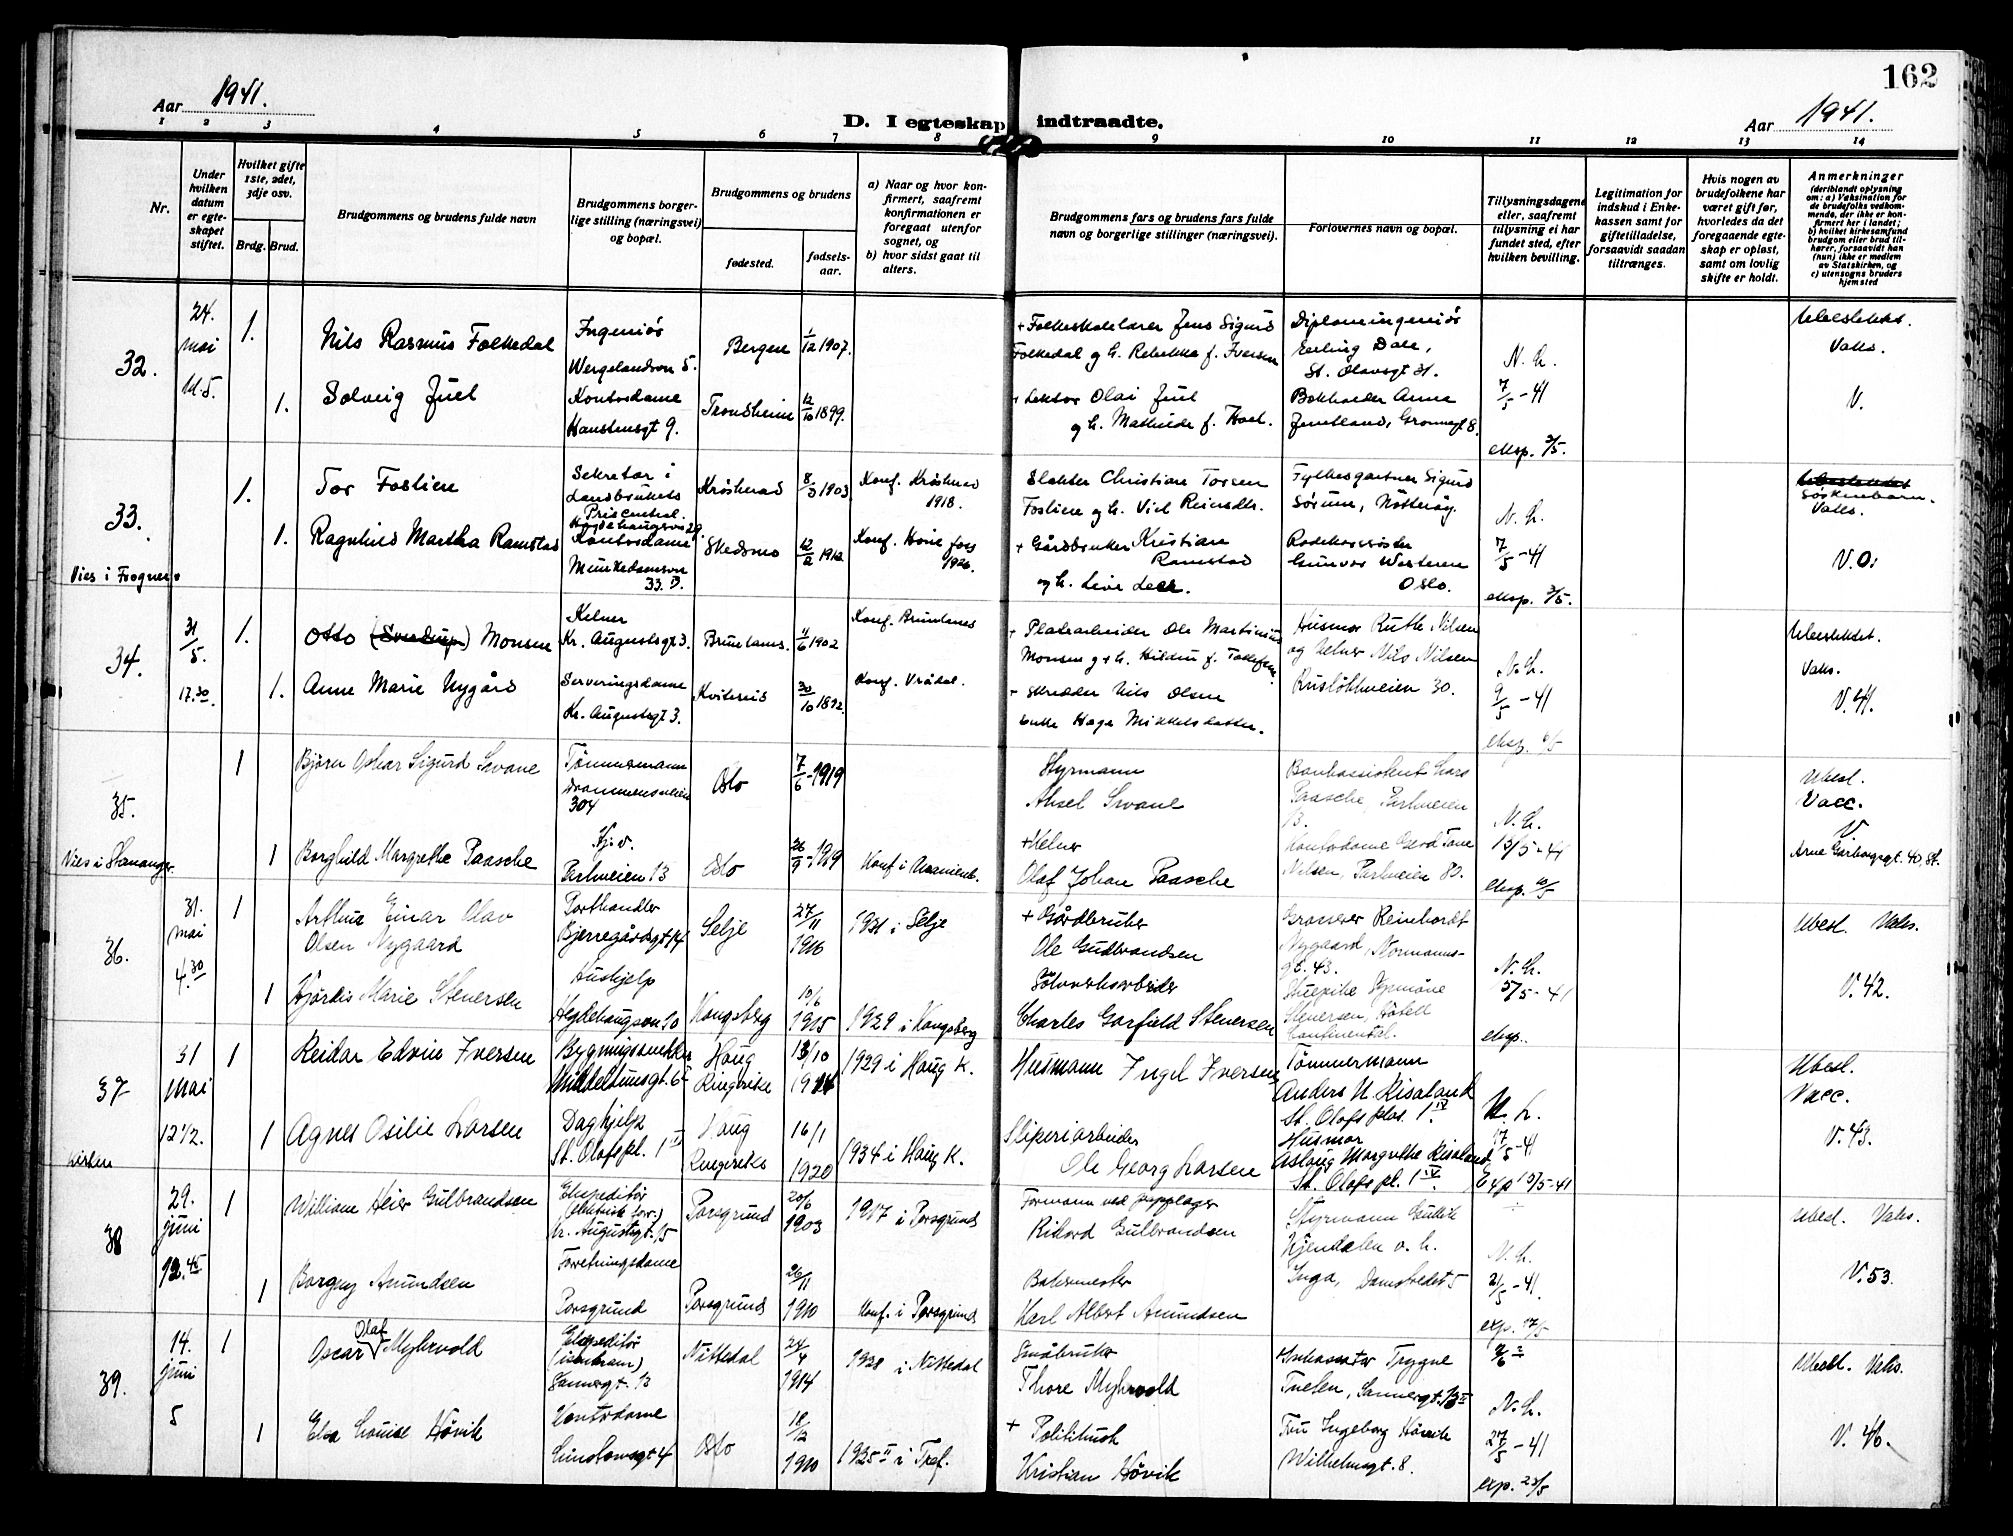 162
Aar 1941.
D. I egteskap indtraadte.
Aar 1941.
1 2 3 4 5 6 7 8 9 10 11 12 13 14
Nr.
Under hvilken datum er egteskapet stiftet.
Hvilket gifte 1ste, 2det, 3dje osv.
Brdg. Brud.
Brudgommens og brudens fulde navn
Brudgommens borgerlige stilling (næringsvei) og bopæl.
Brudgommens og brudens
fødested.
fødselsaar.
a) Naar og hvor konfirmert, saafremt konfirmationen er foregaat utenfor sognet, og
b) hvor sidst gaat til alters.
Brudgommens fars og brudens fars fulde navn og borgerlige stillinger (næringsvei).
Forlovernes navn og bopæl.
Tillysningsdagene eller, saafremt tillysning ei har fundet sted, efter hvilken bevilling.
Legitimation for indskud i Enkekassen samt for giftetilladelse, forsaavidt saadan tiltrænges.
Hvis nogen av brudefolkene har været gift før, hvorledes da det foregaaende egteskap er opløst, samt om lovlig skifte er holdt.
Anmerkninger
(deriblandt oplysning om: a) Vaksination for de brudefolks vedkommende, der ikke er konfirmert her i landet; b) hvilket kirkesamfund brudgom eller brud tilhører, forsaavidt han (hun) ikke er medlem av Statskirken, og c) utensogns bruders hjemsted
32.
24. mai kl. 5.
1. Nils Rasmus Folkedal
Ingeniør
Wergelandsvn 5.
Bergen 1/12 1907.
+ Folkeskolelærer Jens Sigurd
Folkedal og h. Rebekka f. Iversen
Diplomingeniør
Erling Dale,
St. Olavsgt 31.
N. h.
7/5 - 41
eksp.
Ubeslektet.
Vaks.
V.
1. Solveig Juel
Kontordame
Hanstensgt 9.
Trondheim 12/10 1899.
+ Lektor Olai Juel
og h. Mathilde f. Hoel.
Bokholder Anna
Jemtland, Grønnegt 8.
33.
Vies i Frogner
1. Tor Foslien
Sekretær i
Landbrukets
Priscentral.
Hegdehaugsvn 29.
Krøsherad 8/3 1903
Konf. Krøsherad
1918.
Slakter Christian Torsen
Foslien og h.
Fylkesgartner Sigurd
Sørum, Nøtterøy.
N. h.
7/5 - 41
eksp.
Søskenbarn.
Vaks.
V. O.
1. Ragnhild Martha Ramstad
Kontordame
Munkedamsvn
33. D.
Skedsmo 12/2 1912
1926.
+ Gårdbruker Kristian
Ramstad
og h. Live Leer.
Rødekorssøster
Gunvor Westeren
Oslo.
34.
31/5.
17.30
1. Otto (Sverdrup) Monsen
Kelner
Kr. Augustsgt 3.
Brunlanes. 11/6 1902
Konf. Brunlanes
+ Platearbeider Ole Martinius
Monsen og h. Hildur f. Tollefsen
Husmor Ruth Nilsen
og kelner Nils Nilsen
30.
N. h.
9/5 - 41
eksp.
Ubeslektet.
Vaks.
V. 41.
1. Anne Marie Nygård
Serveringsdame
Kr. Augustsgt 3.
Kviteseid 30/10 1892.
Konf. Vrådal.
+ Skredder Nils Olsen
Enke Hæge Mikkelsdatter.
35.
Vies i Stavanger
1 Bjørn Oskar Sigurd Svane
Tømmermann
Drammensveien
304
Oslo 7/6 - 1919
Styrmann
Aksel Svane
Bankassistent Lars
Paasche, Parkveien
13.
N. h.
13/5 - 41
eksp.
Ubesl.
Vacc.
V.
Arne Garborgsgt. 40, St.
1 Borghild Margrethe Paasche
Hj. v.
Parkveien 13
Oslo 26/9 - 1919
Konf. i Uranienb.
+ Kelner
Olaf Johan Paasche
Kontordame Gerd Tone
Nilsen, Parkveien 80.
36.
31. mai
4.30
1 Arthur Einar Olav
Olsen Nygaard
Porthandler
Bjerregårdsgt 14
Selje 27/11 1916
1931 i Selje
+ Gårdbruker
Ole Gudbrandsen
Grosserer Reinhardt
Nygaard, Normannsgt. 43.
N. h.
5/5 - 41
eksp.
Ubesl. Vaks.
V. 42.
1 Hjørdis Marie Stenersen
Hushjelp
Hegdehaugsvn 30
Kongsberg 10/6 1915
1929 i Kongsberg
Sølvverksarbeider
Charles Garfield Stenersen
Stenersen, Hotell
Continental.
37
31 mai
12 1/2.
kirken
1 Reidar Edvin Iversen
Bygningssnekker
Middelthunsgt. 6
Haug
Ringerike
13/10 1914
1929 i Haug K.
Husmann Ingel Iversen
Tømmermann
Anders N. Kisaland
St. Olafs plas. 1 IV
N. h.
17/5 - 41
Exp 19/5-41
Ubesl.
Vacc.
V. 43.
1 Agnes Osilie Larsen
Daghjelp
St. Olafspl. 1 IV
Haug
Ringerike
16/1 1920
1934 i Haug K.
Sliperiarbeider
Ole Georg Larsen
Husmor
Aslaug Margrethe Kisaland
St. Olafs pl. 1 IV.
38
29. juni
12.45
1 William Heier Gulbrandsen
Ekspeditør
(elektrisk forr.)
Kr. Augustsgt. 15
Porsgrund 20/6 1903
1917 i Porsgrund
Formann ved papplager
Rikard Gulbrandsen
Styrmann Gullik
Kjendalen o. h.
Inga, Damstredet 5
N. h.
21/5 - 41
exp.
Ubesl. Vaks.
V. 53.
1 Borgny Amundsen
Forretningsdame
Porsgrund
Porsgrund 26/11 1910
Konf. i Porsgrund
Bakermester
Karl Albert Amundsen
39.
14. juni
5
1 Oscar Olaf Myhrvold
Ekspeditør
(isenkram)
Sannergt. 13
Nittedal 24/4 1914
1928 i Nittedal
Småbruker
Thore Myhrvold
Inkassator Trygve
Tuelen, Sannergt. 13 II
N. h.
27/5 - 41
exp. 23/5
Ubesl. Vaks.
V. 46.
1 Elsa Louise Høvik
Kontordame
Lindstowsgt 4
Oslo 18/12 1910
1925 II i Tref.
+ Politibetj
Kristian Høvik
Fru Ingeborg Høvik
Wilhelmsgt. 8.